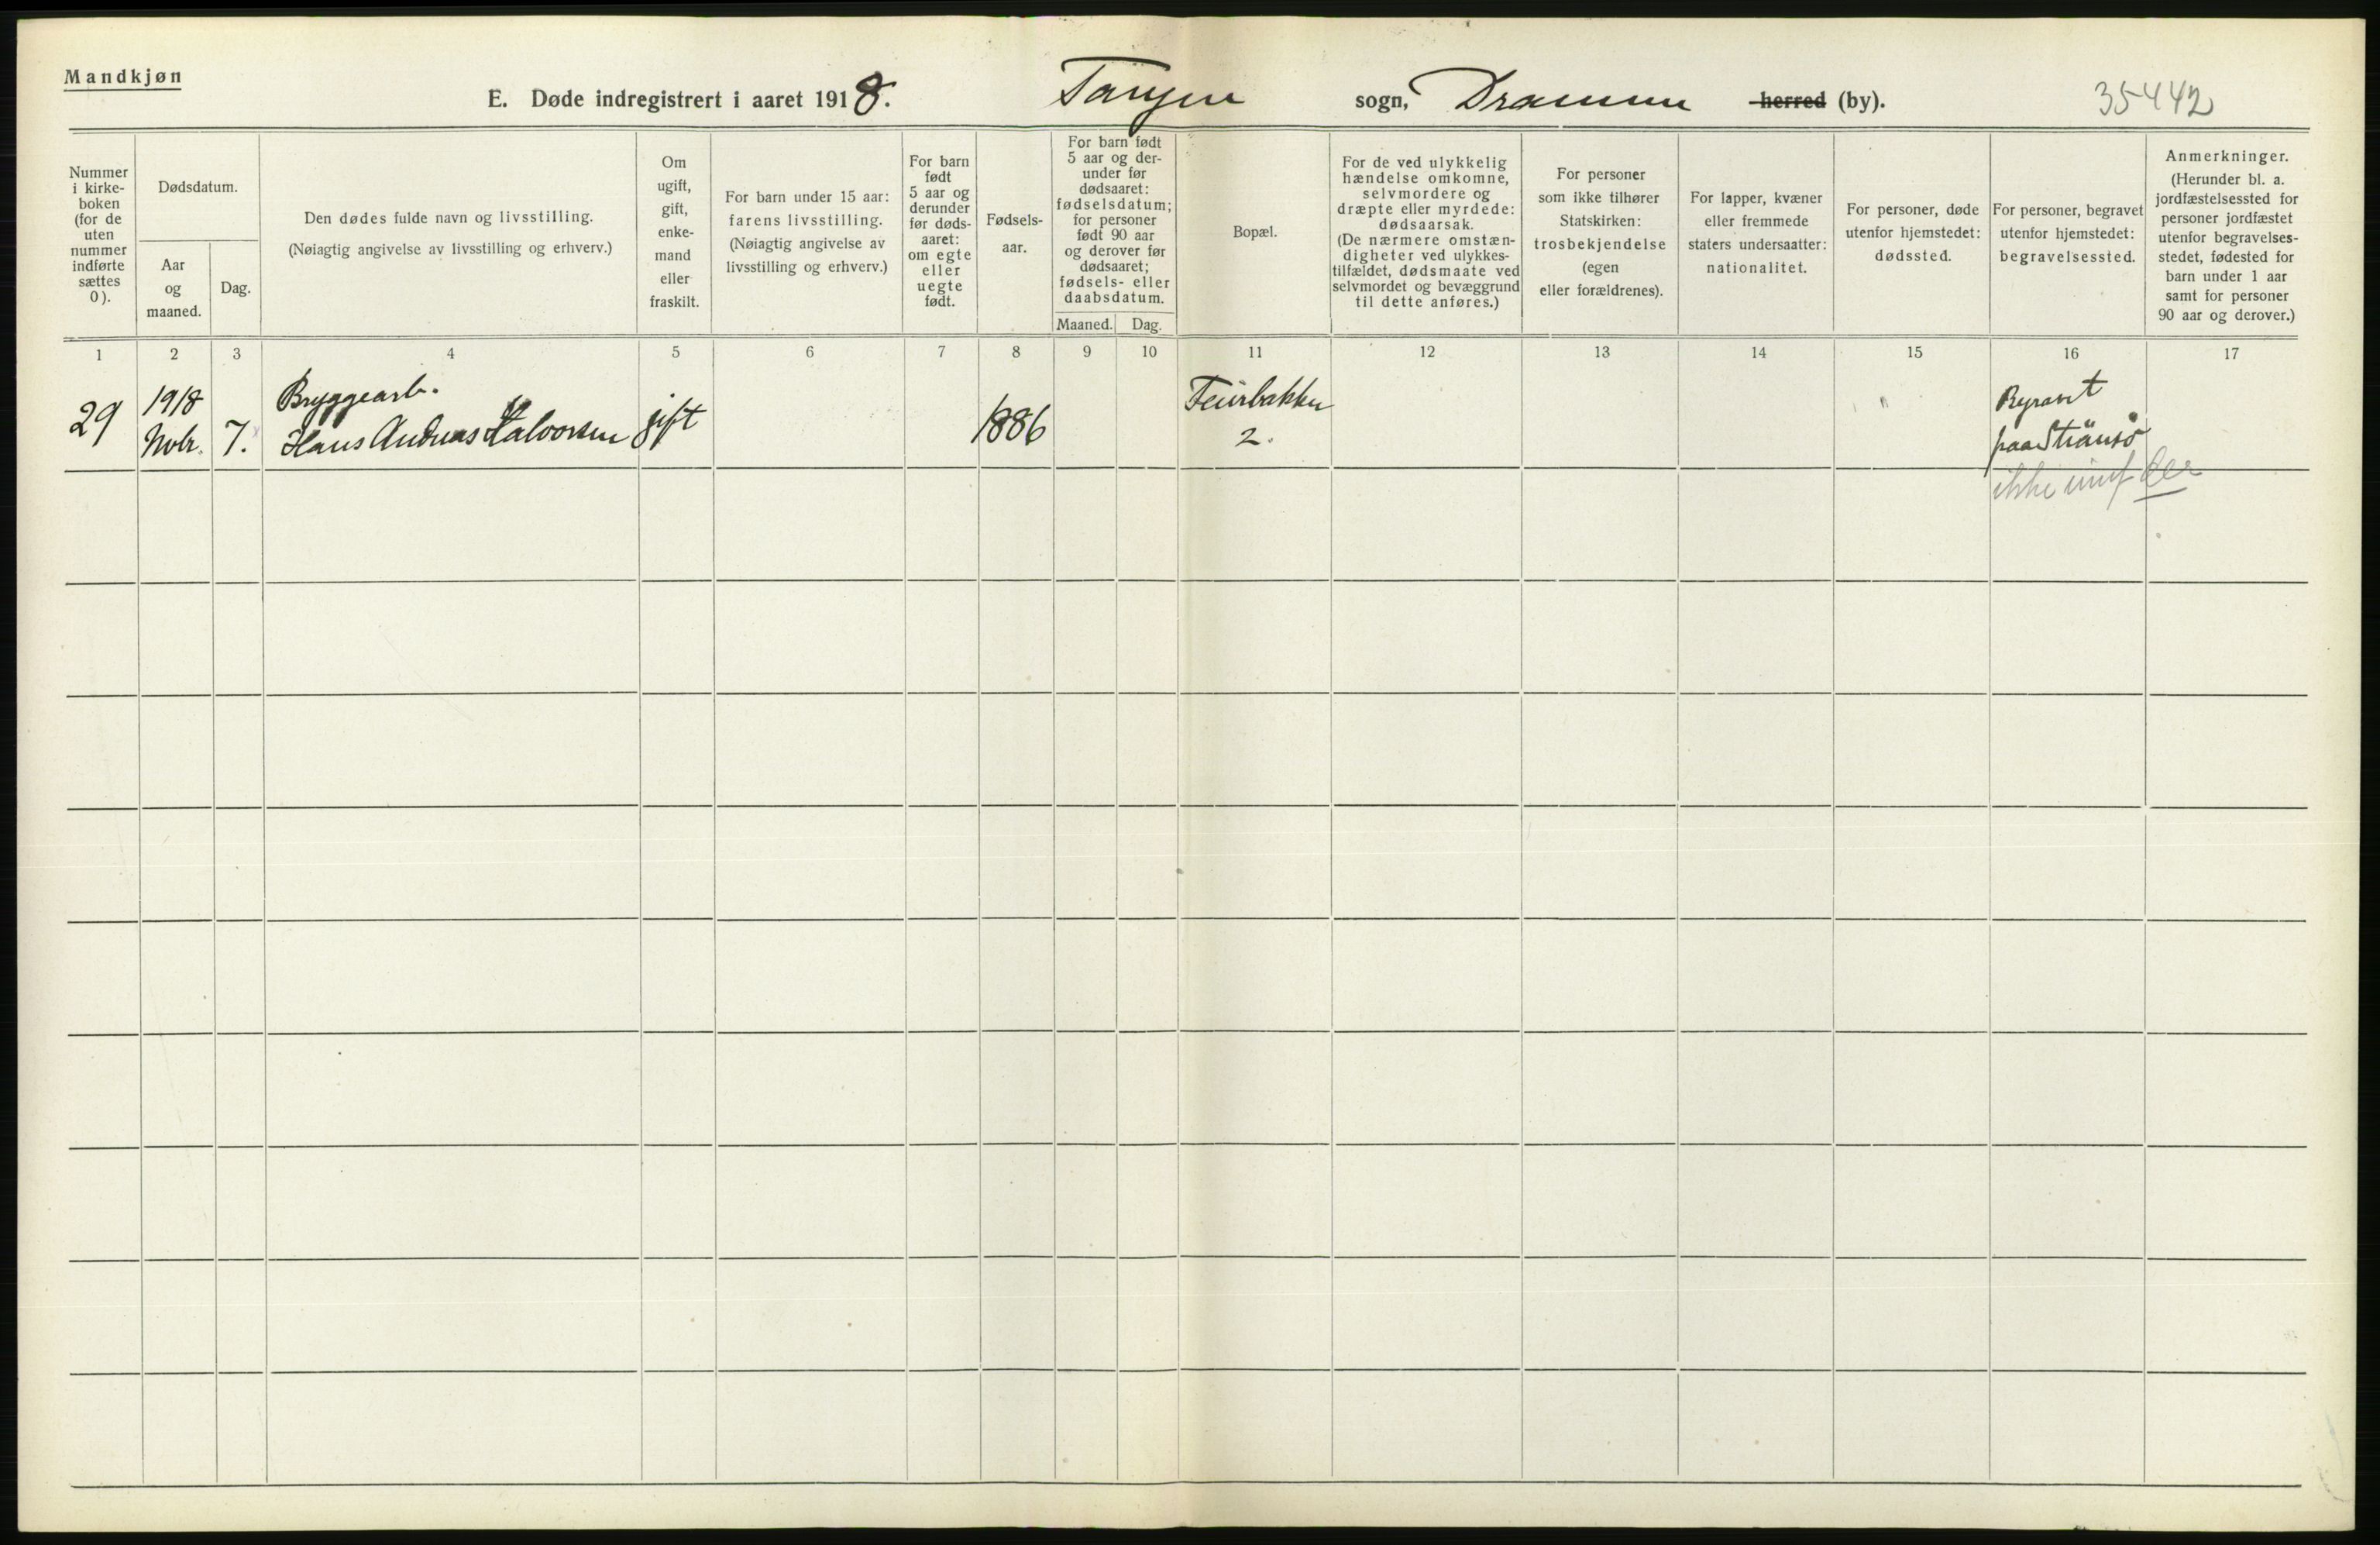 Mandkjøn
E. Døde indregistrert i aaret 1918. Tangen sogn, Drammen herred (by). 35442
Nummer
i kirke-
boken
(for de
uten
nummer
indførte
sættes
0).
Dødsdatum.
Aar
og
maaned.
Dag.
Den dødes fulde navn og livsstilling.
(Nøiagtig angivelse av livsstilling og erhverv.)
Om
ugift,
gift,
enke-
mand
eller
fraskilt.
For barn under 15 aar:
farens livsstilling.
(Nøiagtig angivelse av
livsstilling og erhverv.)
For barn
født
5 aar og
derunder
før døds-
aaret:
om egte
eller
uegte
født.
Fødsels-
aar.
For barn født
5 aar og der-
under før
dødsaaret:
fødselsdatum;
for personer
født 90 aar
og derover før
dødsaaret;
fødsels- eller
daabsdatum.
Maaned. Dag.
Bopæl.
For de ved ulykkelig
hændelse omkomne,
selvmordere og
dræpte eller myrdede:
dødsaarsak.
(De nærmere omstæn-
digheter ved ulykkes-
tilfældet, dødsmaate ved
selvmordet og bevæggrund
til dette anføres.)
For personer
som ikke tilhører
Statskirken:
trosbekjendelse
(egen
eller forældrenes).
For lapper, kvæner
eller fremmede
staters undersaatter:
nationalitet.
For personer, døde
utenfor hjemstedet:
dødssted.
For personer, begravet
utenfor hjemstedet:
begravelsessted.
Anmerkninger.
(Herunder bl. a.
jordfæstelsessted for
personer jordfæstet
utenfor begravelses-
stedet, fødested for
barn under 1 aar
samt for personer
90 aar og derover.)
1 2 3 4 5 6 7 8 9 10 11 12 13 14 15 16 17
29
1918
Nvbr. 7.
Bryggearb.
Hans Andreas Halvorsen
gift
1886
Feierbakken
2.
paa Strømsø
ikke